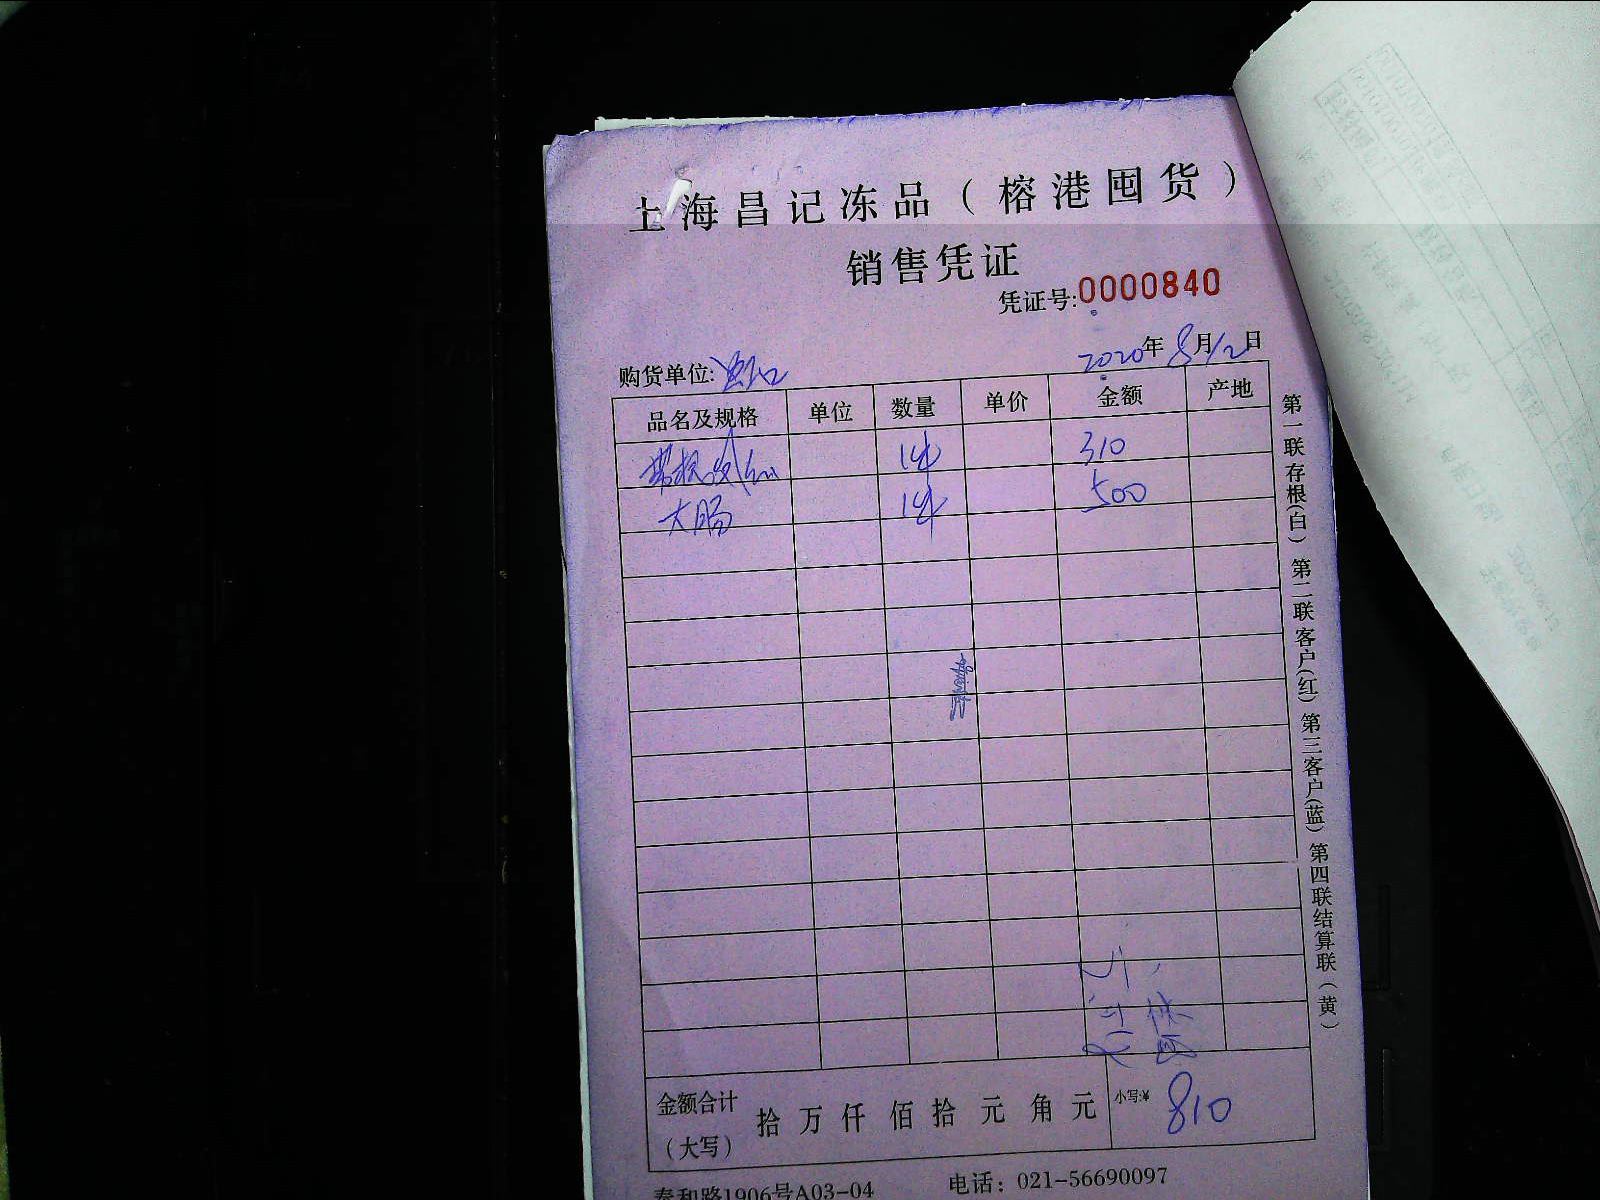 上海昌记冻品（榕港囤货）
销售凭证
凭证号:0000840
购货单位: 2020年8月12日
品名及规格 单位 数量 单价 金额 产地
1件 310
大肠 1件 500
金额合计（大写） 拾万仟佰拾元角元 小写:¥ 810
泰和路1906号A03-04 电话：021-56690097
第一联存根（白） 第二联客户（红） 第三客户（蓝） 第四联结算联（黄）